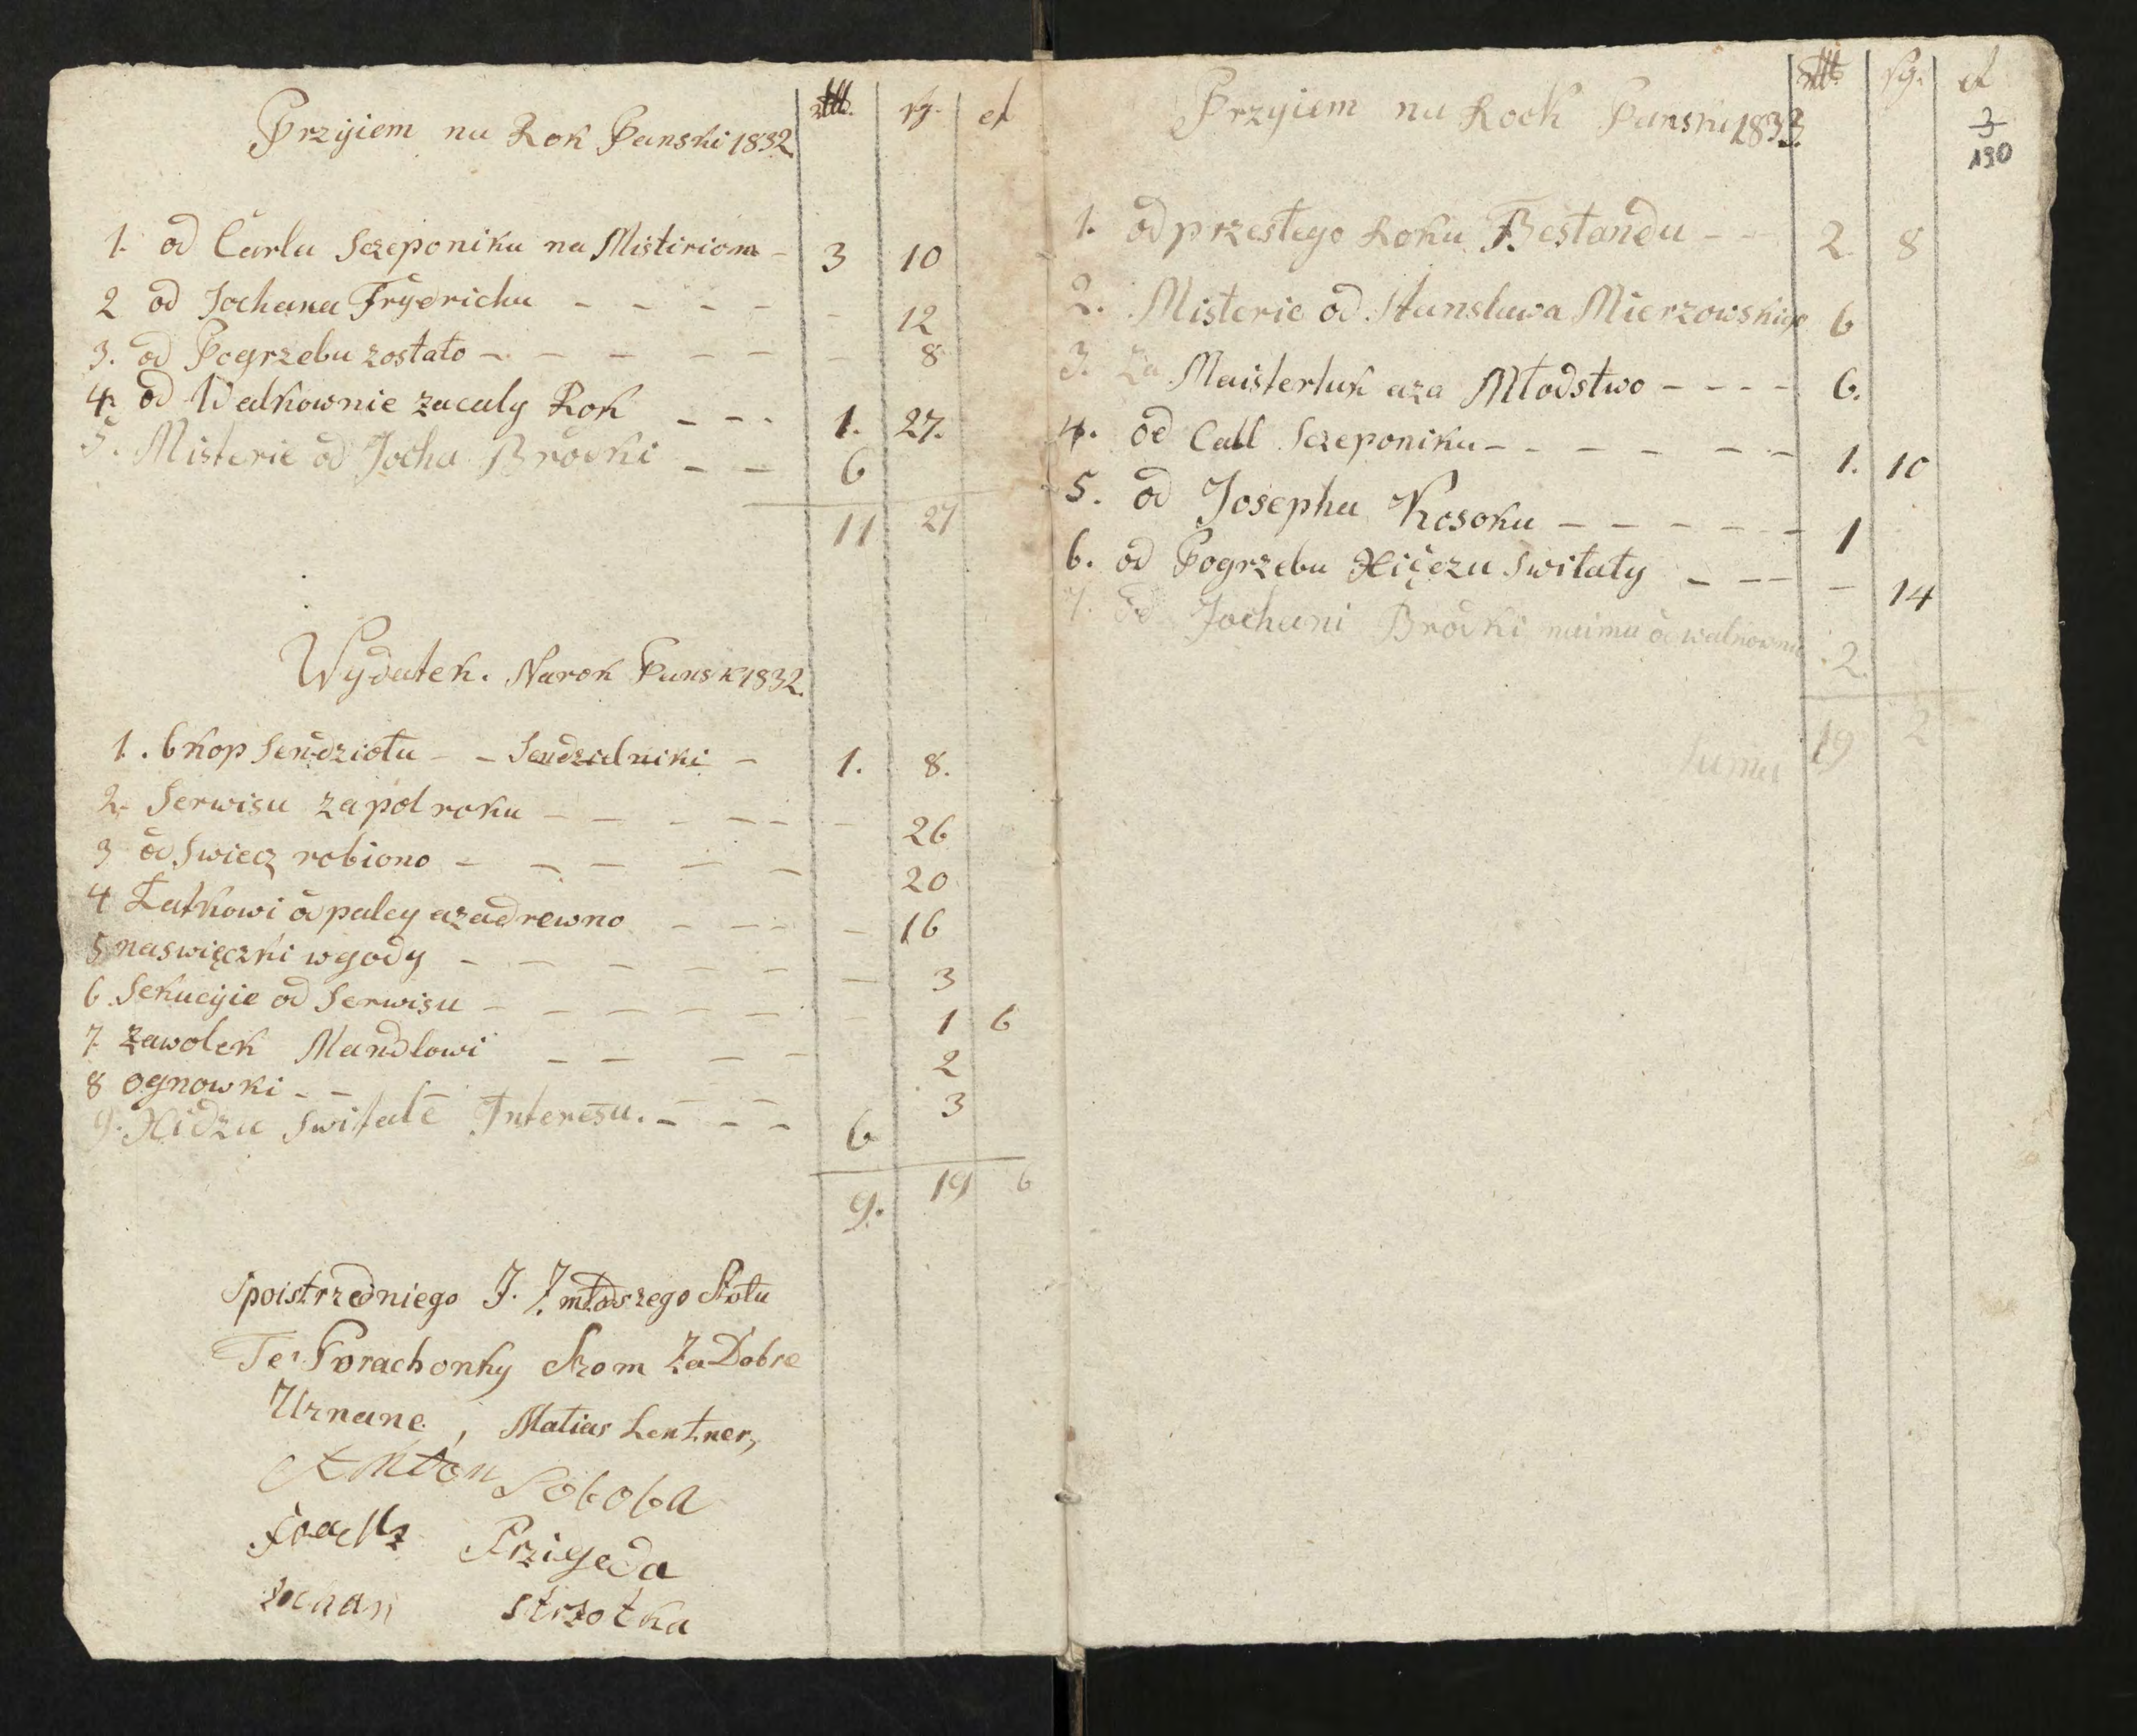 Przyiem na Rok Panski 1832 rtll. sg. d
1. od Carla Sczeponika na Mistiriom - 3 10
2 od Jochana Frydericha - - - - - 12
3. od Pogrzebu zostało - - - - - - 8
4. od Walkownie za caly Rok - - - 1. 27.
5. Misterie od Jocha Brodki - - 6
11 27
Wydatek. Na rok Pansk 1832
1. 6 kop Sendziołu - - Sendzielniki - 1. 8.
2. Serwisu za pol roku - - - - - - 26
3 od Swiecz robiono - - - - - 20
4 Łatkowi od paley a za drewno - - - - 16
5 na swięczki w gody - - - - - - - 3
6 Sekucyie od Serwisu - - - - - - - 1 6
7 zawolek Mandlowi - - - - 2
8 ognowki - - - - 3
9. Xidzu Switale Interesu. - - - 6
9. 19 6
Spoistrzedniego J. Z młodszego Stołu
Te Porachonky Som Za Dobre
Uznane, Matias Lentner,
Anton Soboba
Przigeda
Jochan Strzotka
Przyiem na Rock Panski 1833. rtll. sg. d
3
190
1. od przesłego Roku Bestandu - - 2. 8
2. Misterie od Stansława Mierzowskiego 6
3. Za Maisterluk a za Młodstwo - - - - 6.
4. od Carl Sczeponika - - - - - - 1. 10
5. od Josepha Kosoka - - - - - - 1
6. od Pogrzebu Xięczu Switały - - - - 14
7. od Jochani Brodki naimu od walkowni 2.
Suma 19 2